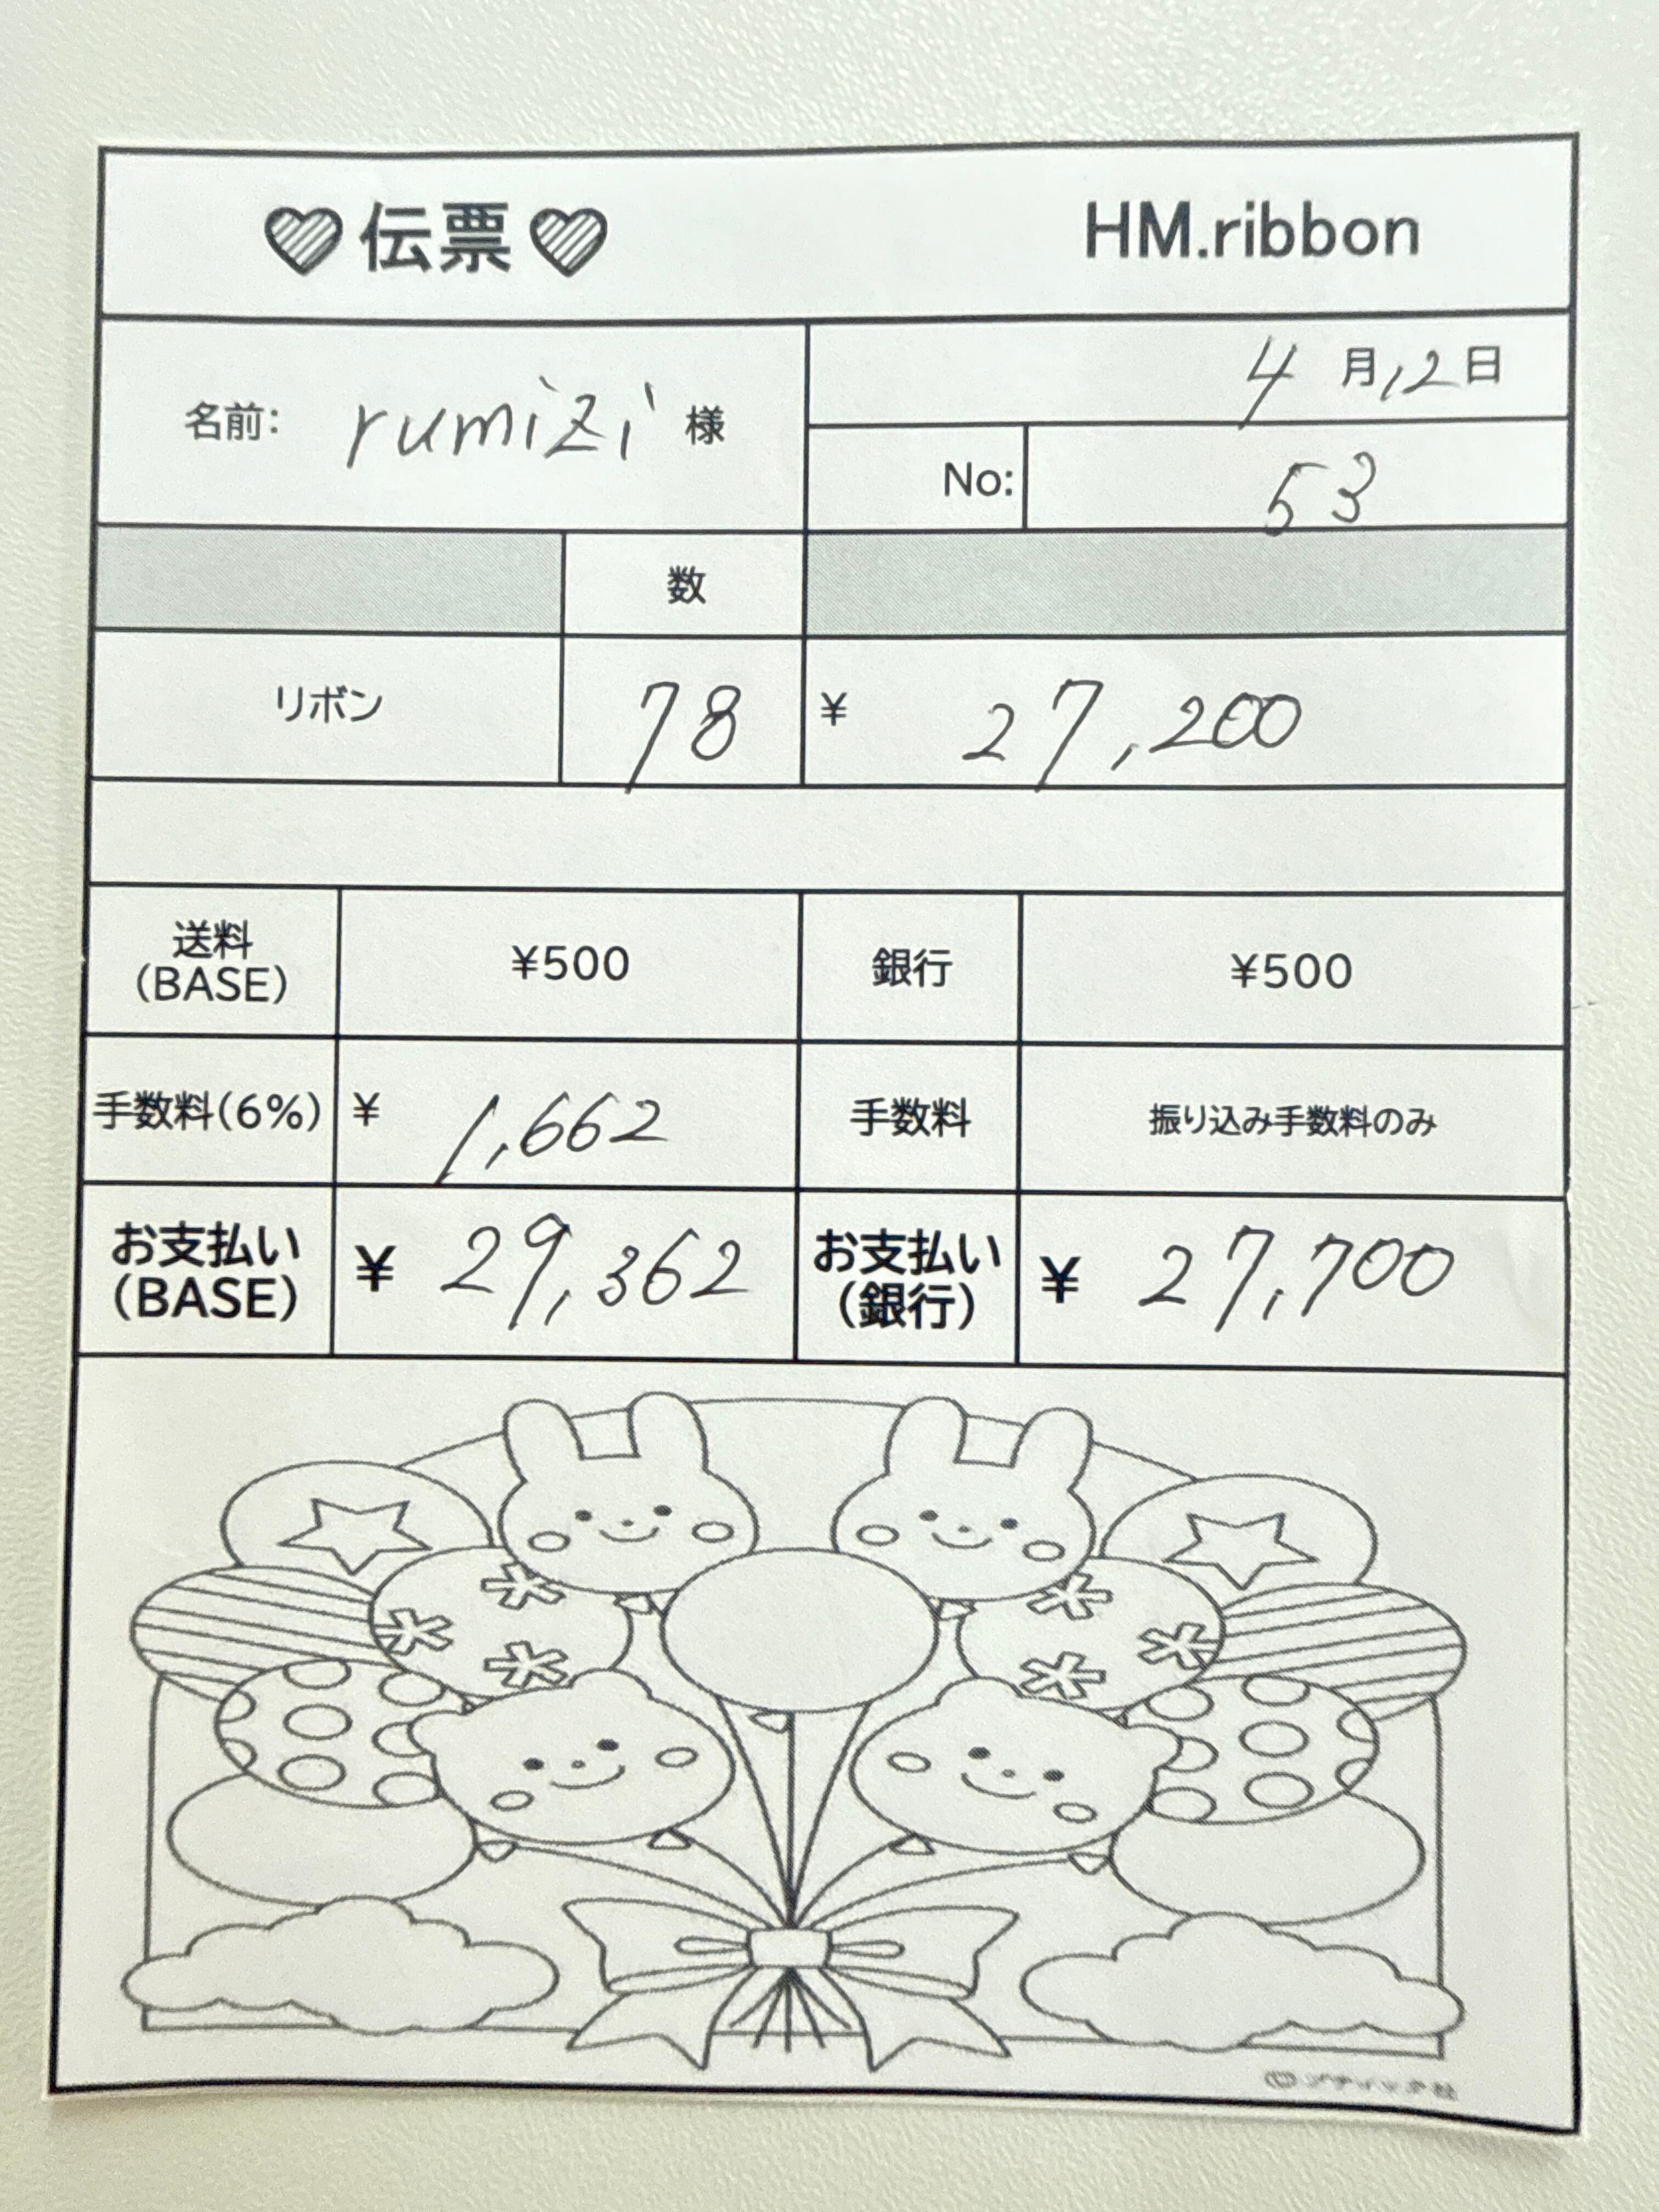 伝票 HM.ribbon
名前: rumizi 様
4月12日
No: 53
数
リボン 78 ¥ 27,200
送料(BASE) ¥500 銀行 ¥500
手数料(6%) ¥ 1,662 手数料 振り込み手数料のみ
お支払い(BASE) ¥ 29,362 お支払い(銀行) ¥ 27,700
©ブティック社